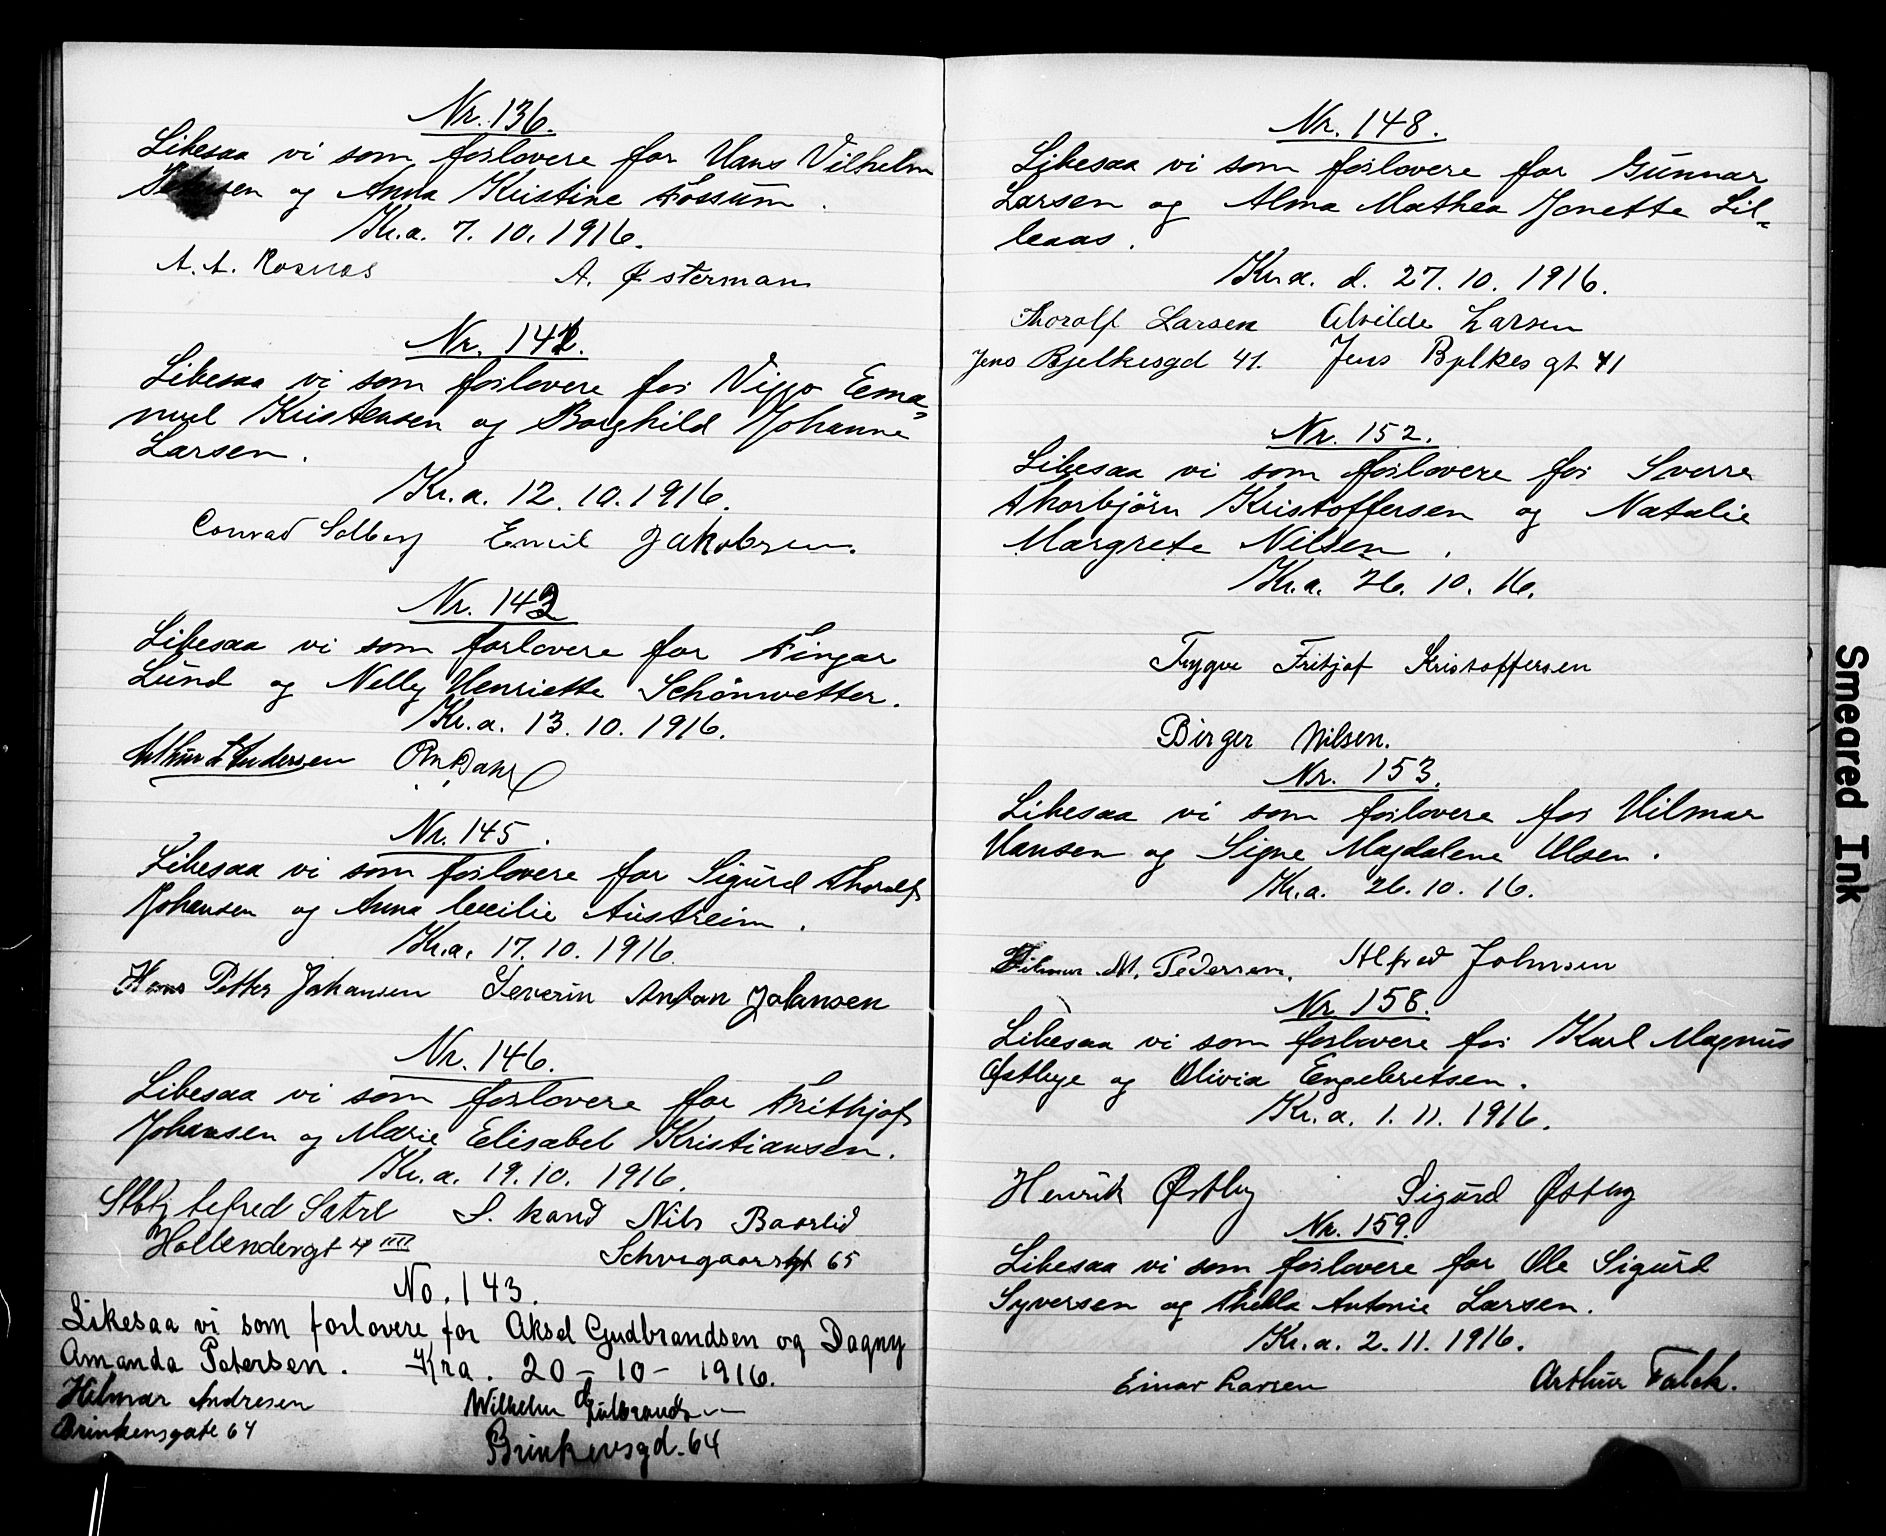 Nr. 136.
Likesaa vi som forlovere for Hans Vilhelm
og Anna Kristine Fossum.
Kr.a. 7.10.1916.
A. A. Rosnes
A. Østerman
Nr. 141.
Likesaa vi som forlovere for Viggo Ema-
nuel Kristensen og Borghild Johanne
Larsen.
Kr.a. 12.10.1916.
Conrad Solberg Emil Jakobsen.
Nr. 142
Likesaa vi som forlovere for Fingar
Lund og Nelly Henriette Schönwetter.
Kr.a. 13.10.1916.
Arthur L Andersen
Nr. 145.
Likesaa vi som forlovere for Sigurd Thoralf
Johansen og Anna Cecilie Austreim.
Kr.a. 17.10.1916.
Hans Petter Johansen Severin Anton Johansen
Nr. 146.
Likesaa vi som forlovere for Frithjof
Johansen og Marie Elisabet Kristiansen.
Kr.a. 19.10.1916.
Alfred Sætre S. kand Nils Baarlid
Hollendergt 4 IIII
Schvegaarsgt 65
No. 143.
Likesaa vi som forlovere for Aksel Gudbrandsen og Dagny
Amanda Petersen. Kra. 20-10-1916.
Hilmar Andresen
Wilhelm
Brinkensgate 64
Brinkensgd. 64
Nr. 148.
Likesaa vi som forlovere for Gunnar
Larsen og Alma Mathea Jonette Lil-
leaas.
Kr.a. d. 27.10.1916.
Thorolf Larsen Alvilde Larsen
Jens Bjelkesgd 41. Jens Bjelkes gt 41
Nr. 152.
Likesaa vi som forlovere for Sverre
Thorbjörn Kristoffersen og Natalie
Margrete Nilsen.
Kr.a. 26.10.16.
Trygve Fritjof Kristoffersen
Birger Nilsen.
Nr. 153.
Likesaa vi som forlovere for Hilmar
Hansen og Signe Magdalene Olsen.
Kr.a. 26.10.16.
M. Pedersen. Alfred Johnsen
Nr. 158.
Likesaa vi som forlovere for Karl Magnus
Østbye og Olivia Engebretsen.
Kr.a. 1.11.1916.
Henrik Østby Sigurd Østby
Nr. 159.
Likesaa vi som forlovere for Ole Sigurd
Syversen og Thekla Antonie Larsen.
Kr.a. 2.11.1916.
Einar Larsen Arthur Falck.
Smeared Ink